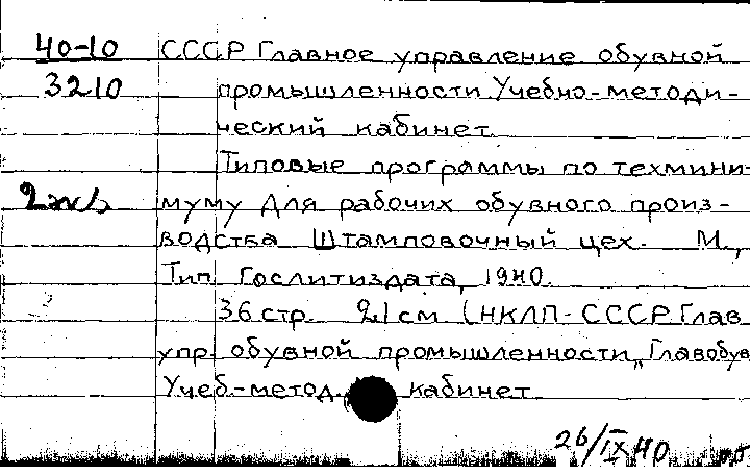 40-10 СССР Главное управление обувной
3210 промышленности Учебно-методи-
ческий кабинет.
Типовые программы по техмини-
2 экз муму для рабочих обувного произ-
водства Штамповочный цех. М.,
Тип. Гослитиздата, 1940.
36 стр. 21 см (НКЛП-СССР. Глав
упр. обувной промышленности „Главобув
Учеб-метод. кабинет
26/IX 40